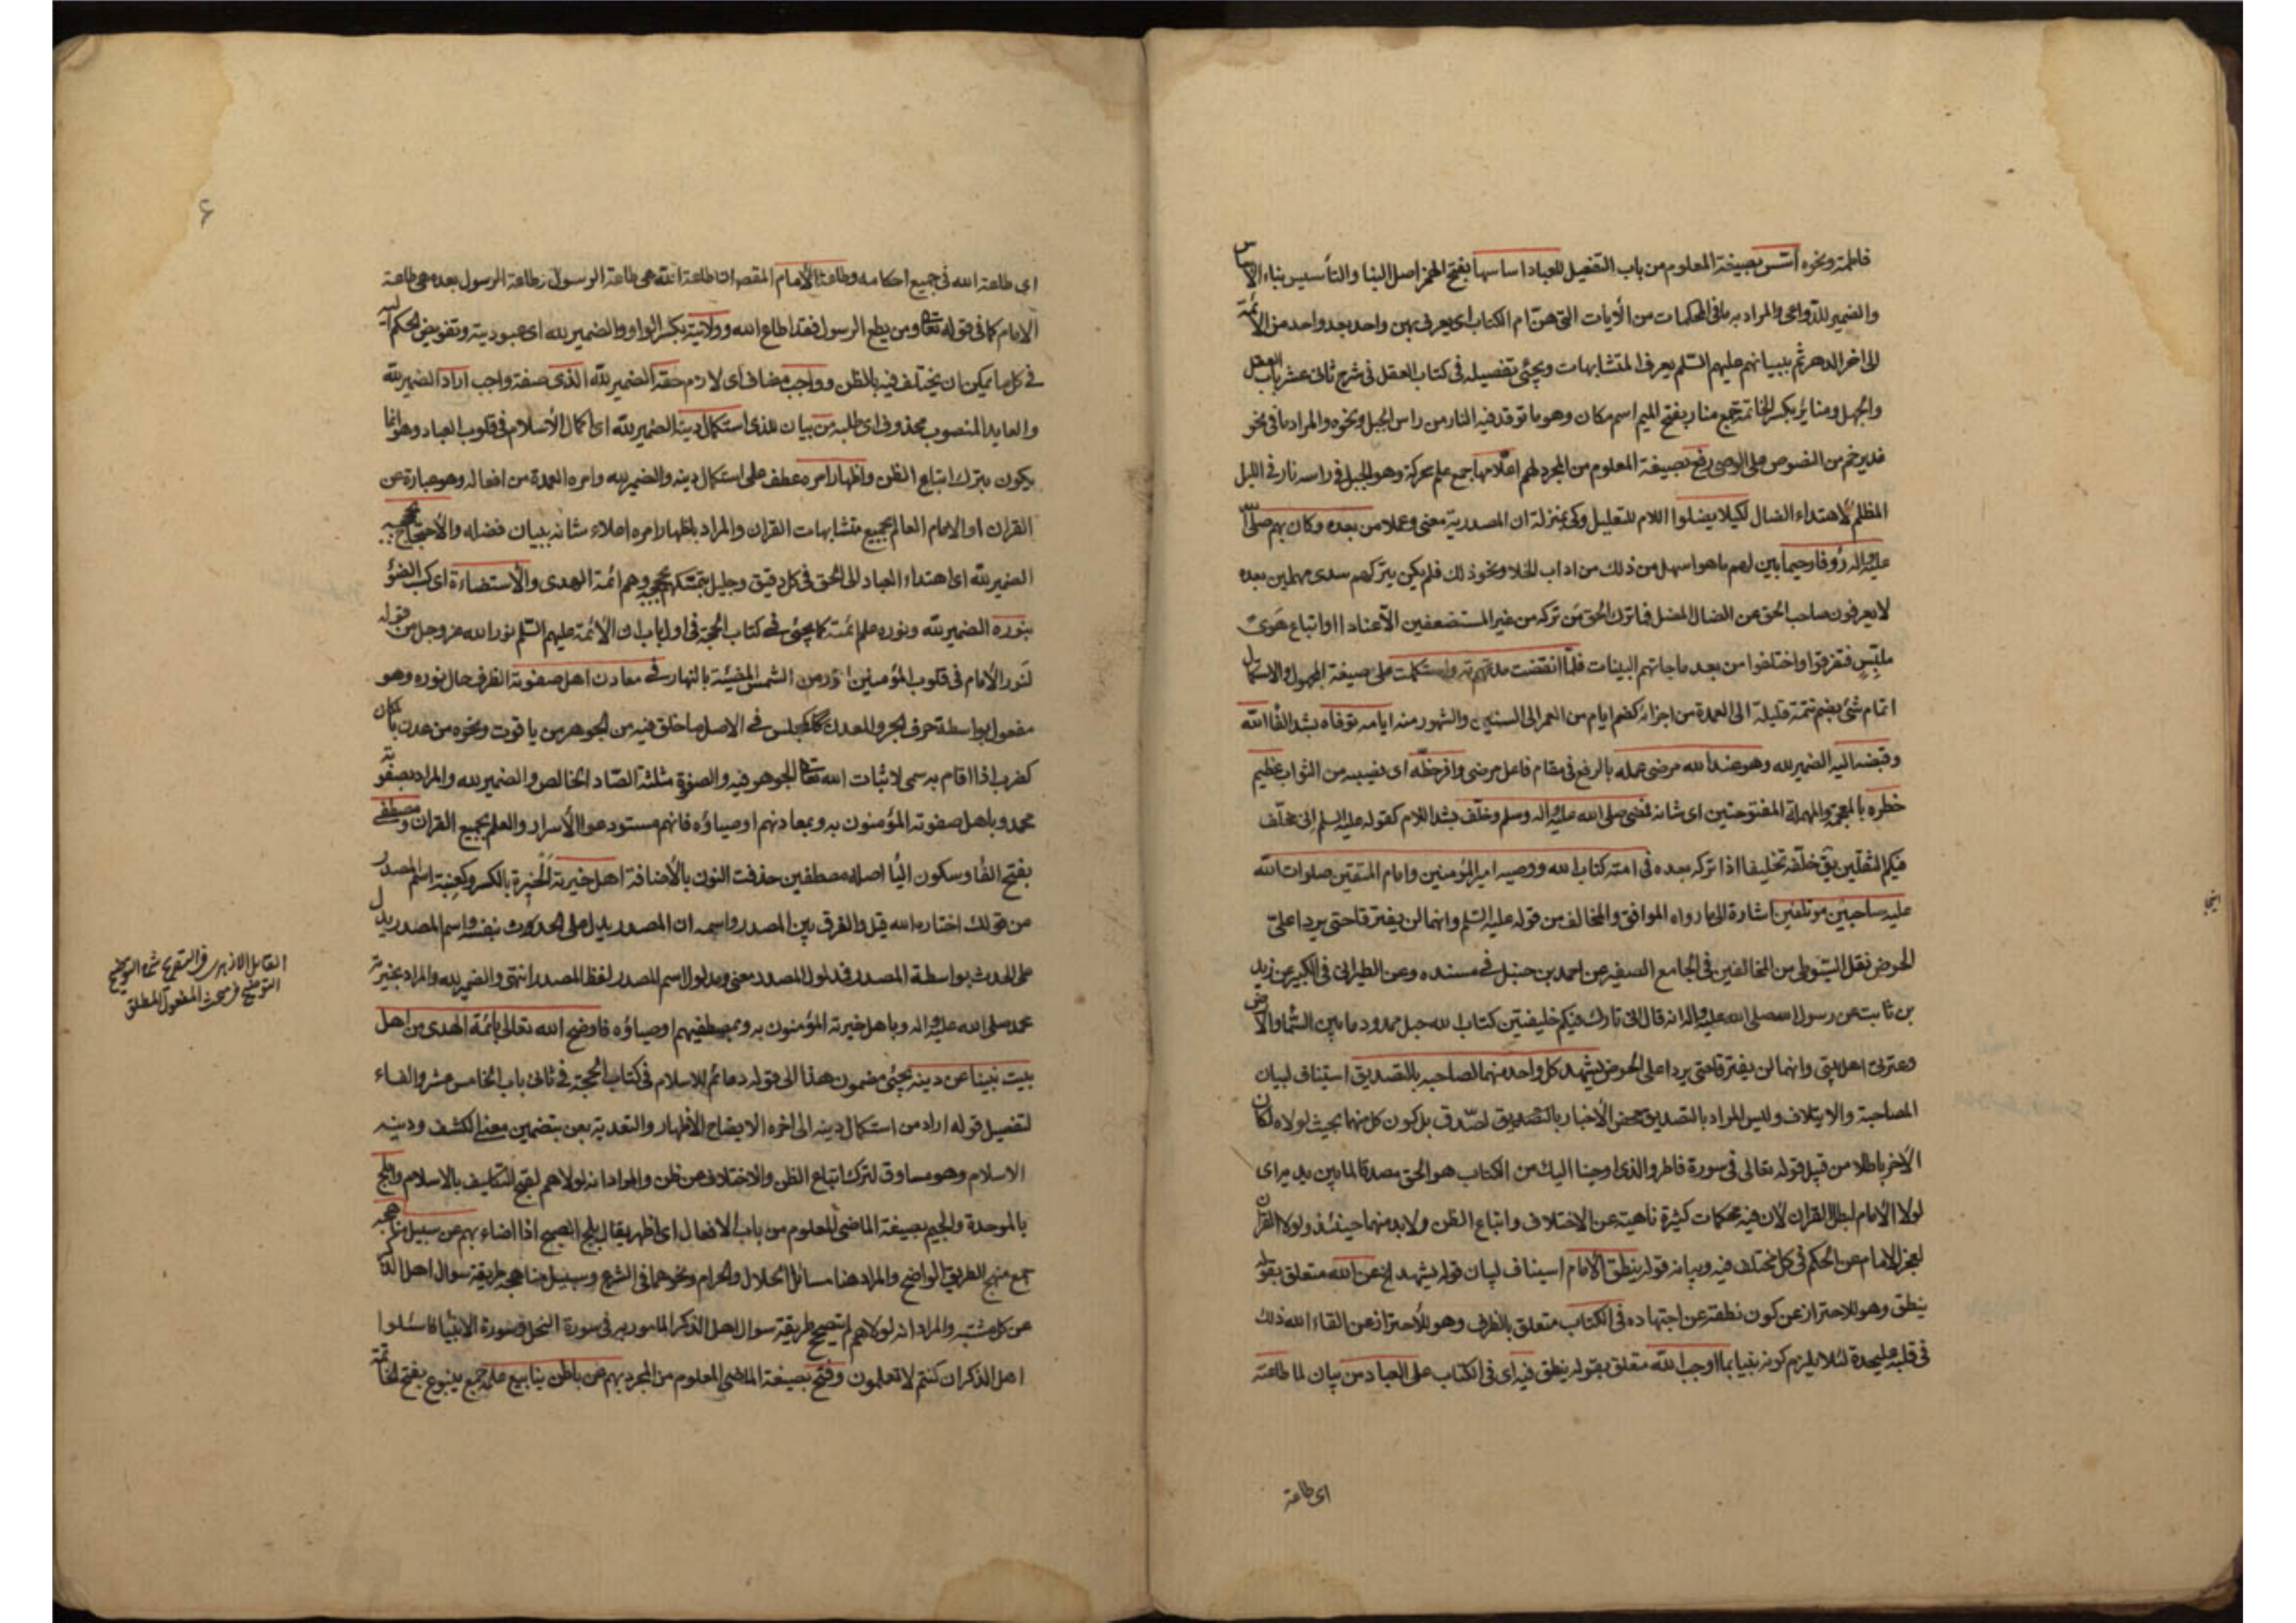 فاطمة ونحوه اسّس بصيغة المعلوم من باب التفعيل للعباد اساسها بفتح الهمز اصل البنا والتأسيس بناء الاساس
والضمير للدواعى والمراد به ما فى المحكمات من الآيات التى هنّ ام الكتاب اى يعرف بهن واحد بعد واحد من الائمة
الى اخر الدهر ثم ببيانهم عليهم السّلم يعرف المتشابهات ويجئ تفصيله فى كتاب العقل فى شرح ثانى عشر باب العقل
والجهل ومنائر بكسر الخاتمة جمع منار بفتح الميم اسم مكان وهو ما توقد فيه النار من راس الجبل ونحوه والمراد ما فى نحو
غدير خم من النصوص على الوصى رفع بصيغة المعلوم من المجرد لهم اعلامها جمع علم محركة وهو الجبل فى راسه نار فى الليل
المظلم لاهتداء الضال لكيلا يضلوا اللام للتعليل وكى بمنزلة ان المصدرية معنى وعملا من بعده وكان بهم صلى الله
عليه واله رؤفا رحيما بين لهم ما هو اسهل من ذلك من اداب الخلا ونحو ذلك فلم يكن يتركهم سدى مهملين بعده
لا يعرفون صاحب الحق عن الضال المضل فما ترك الحق من تركه من غير المستضعفين الا عنادا او اتباع هوى
ملبّس فتفرقوا واختلفوا من بعد ما جاتهم البينات فلمّا انقضت مدّته واستكملت على صيغة المجهول والاستكمال
اتمام شئ بضم تتمة قليلة الى العمدة من اجزائه كضم ايام من العمر الى السنين والشهور منه ايامه توفاه بشد الفا الله
وقبضه اليه الضمير لله وهو عند الله مرضى عمله بالرفع فى مقام فاعل مرضى وافر حظّه اى نصيبه من الثواب عظيم
خطره بالمعجمة والمهملة المفتوحتين اى شانه فمضى صلى الله عليه واله وسلم وخلّف بشد اللام كقوله عليه السلم انى مخلّف
فيكم الثقلين يق خلّفه تخليفا اذا تركه بعده فى امته كتاب الله ووصيه امير المؤمنين وامام المتقين صلوات الله
عليه صاحبين مؤتلفين اشارة الى ما رواه الموافق والمخالف من قوله عليه السّلم وانهما لن يفترقا حتى يردا علىّ
الحوض نقل السّيوطى من المخالفين فى الجامع الصغير عن احمد بن حنبل فى مسنده وعن الطبرانى فى الكبير عن زيد
بن ثابت عن رسول الله صلى الله عليه واله انه قال انى تارك فيكم خليفتين كتاب الله حبل ممدود ما بين السّما والارض
وعترتى اهل بيتى وانهما لن يفترقا حتى يردا على الحوض يشهد كل واحد منهما لصاحبه بالتصديق استيناف لبيان
المصاحبة والايتلاف وليس المراد بالتصديق محض الأخبار بالتصديق لصدق بل كون كل منهما بحيث لولاه لكان
الآخر باطلا من قبيل قوله تعالى فى سورة فاطر والذى اوحينا اليك من الكتاب هو الحق مصدقا لما بين يديه اى
لولا الامام لبطل القران لان فيه محكمات كثيرة ناهية عن الاختلاف واتباع الظن ولا بد منهما حينئذ ولولا القران
لعجز الامام عن الحكم فى كل مختلف فيه وبيانه قوله ينطق الامام استيناف لبيان قوله يشهد الخ عن الله متعلق بقوله
ينطق وهو للاحتراز عن كون نطقه عن اجتهاده فى الكتاب متعلق بالظرف وهو للاحتراز عن القاء الله ذلك
فى قلبه عليحدة لئلا يلزم كونه نبيا بما اوجب الله متعلق بقوله ينطق فيه اى فى الكتاب على العباد من بيان لما طاعته
اى طاعة
۶
اى طاعة الله فى جميع احكامه وطاعة الامام المقصود ان طاعة الله هى طاعة الرسول وطاعة الرسول بعده هى طاعة
الامام كما فى قوله تعالى ومن يطع الرسول فقد اطاع الله وولايته بكسر الواو والضمير لله اى عبوديته وتفويض الحكم اليه
فى كل ما يمكن ان يختلف فيه بالظن وواجب مضاف اى لازم حقه الضمير لله الذى صفة واجب اراد الضمير لله
والعايد المنصوب محذوف اى طلبه من بيان للذى استكمال دينه الضمير لله اى اكمال الاسلام فى قلوب العباد وهو انما
يكون بترك اتباع الظن واظهار امره عطف على استكمال دينه والضمير لله وامره العمدة من افعاله وهو عبارة عن
القران او الامام العالم بجميع متشابهات القران والمراد باظهار امره اعلاء شانه ببيان فضله والاحتجاج بحججه
الضمير لله اى اهتداء العباد الى الحق فى كل دقيق وجليل بتمسّكهم بحججه وهم ائمة الهدى والاستضاءة اى كسب الضوء
بنوره الضمير لله ونوره علم ائمته كما يجئ فى كتاب الحجة فى اول باب ان الائمة عليهم السّلم نور الله عز وجل من قوله
لنور الامام فى قلوب المؤمنين انور من الشمس المضيئة بالنهار فى معادن اهل صفوته الظرف حال نوره وهو
مفعول بواسطة حرف الجر والمعدن كمجلس فى الاصل ما خلق فيه من الجوهر من ياقوت ونحوه من عدن بالمكان
كضرب اذا اقام به سمى لاثبات الله تعالى الجوهر فيه والصفوة مثلثة الصّاد الخالص والضمير لله والمراد بصفوته
محمد وباهل صفوته المؤمنون به وبمعادنهم اوصياؤه فانهم مستودعوا الأسرار والعلم بجميع القران ومصطفى
بفتح الفا وسكون اليا اصله مصطفين حذفت النون بالاضافة اهل خيرته الخيرة بالكسر وكعنبة اسم المصدر
من قولك اختاره الله قيل والفرق بين المصدر واسمه ان المصدر يدل على الحدوث بنفسه واسم المصدر يدل
على الحدث بواسطة المصدر فمدلول المصدر معنى ومدلول اسم المصدر لفظ المصدر انتهى والضمير لله والمراد بخيرته
محمد صلى الله عليه واله وباهل خيرته المؤمنون به وبمصطفيهم اوصياؤه فاوضح الله تعالى بائمة الهدى من اهل
بيت نبينا عن دينه يجئ مضمون هذا الى قوله دعائم الاسلام فى كتاب الحجة فى ثانى باب الخامس عشر والفاء
لتفصيل قوله اراد من استكمال دينه الى اخره الايضاح الاظهار والتعدية بعن بتضمين معنى الكشف ودينه
الاسلام وهو مساوق لترك اتباع الظن والاختلاف عن ظن والمراد انه لولاهم لقبح التكليف بالاسلام وابلج
بالموحدة والجيم بصيغة الماضى المعلوم من باب الافعال اى اظهر يقال بلج الصبح اذا اضاء بهم عن سبيل مناهجه
جمع منهج الطريق الواضح والمراد هنا مسائل الحلال والحرام ونحوهما فى الشرع وسبيل مناهجه طريقة سوال اهل الذكر
عن كل مشتبه والمراد انه لولاهم لم يتضح طريقة سوال اهل الذكر المامور به فى سورة النحل وسورة الانبيا فاسئلوا
اهل الذكر ان كنتم لا تعلمون وفتح بصيغة الماضى المعلوم من المجرد بهم عن باطن ينابيع علمه جمع ينبوع بفتح الخاتمة
القايل الازهرى فى التصريح شرح التوضيح
فى مبحث المفعول المطلق